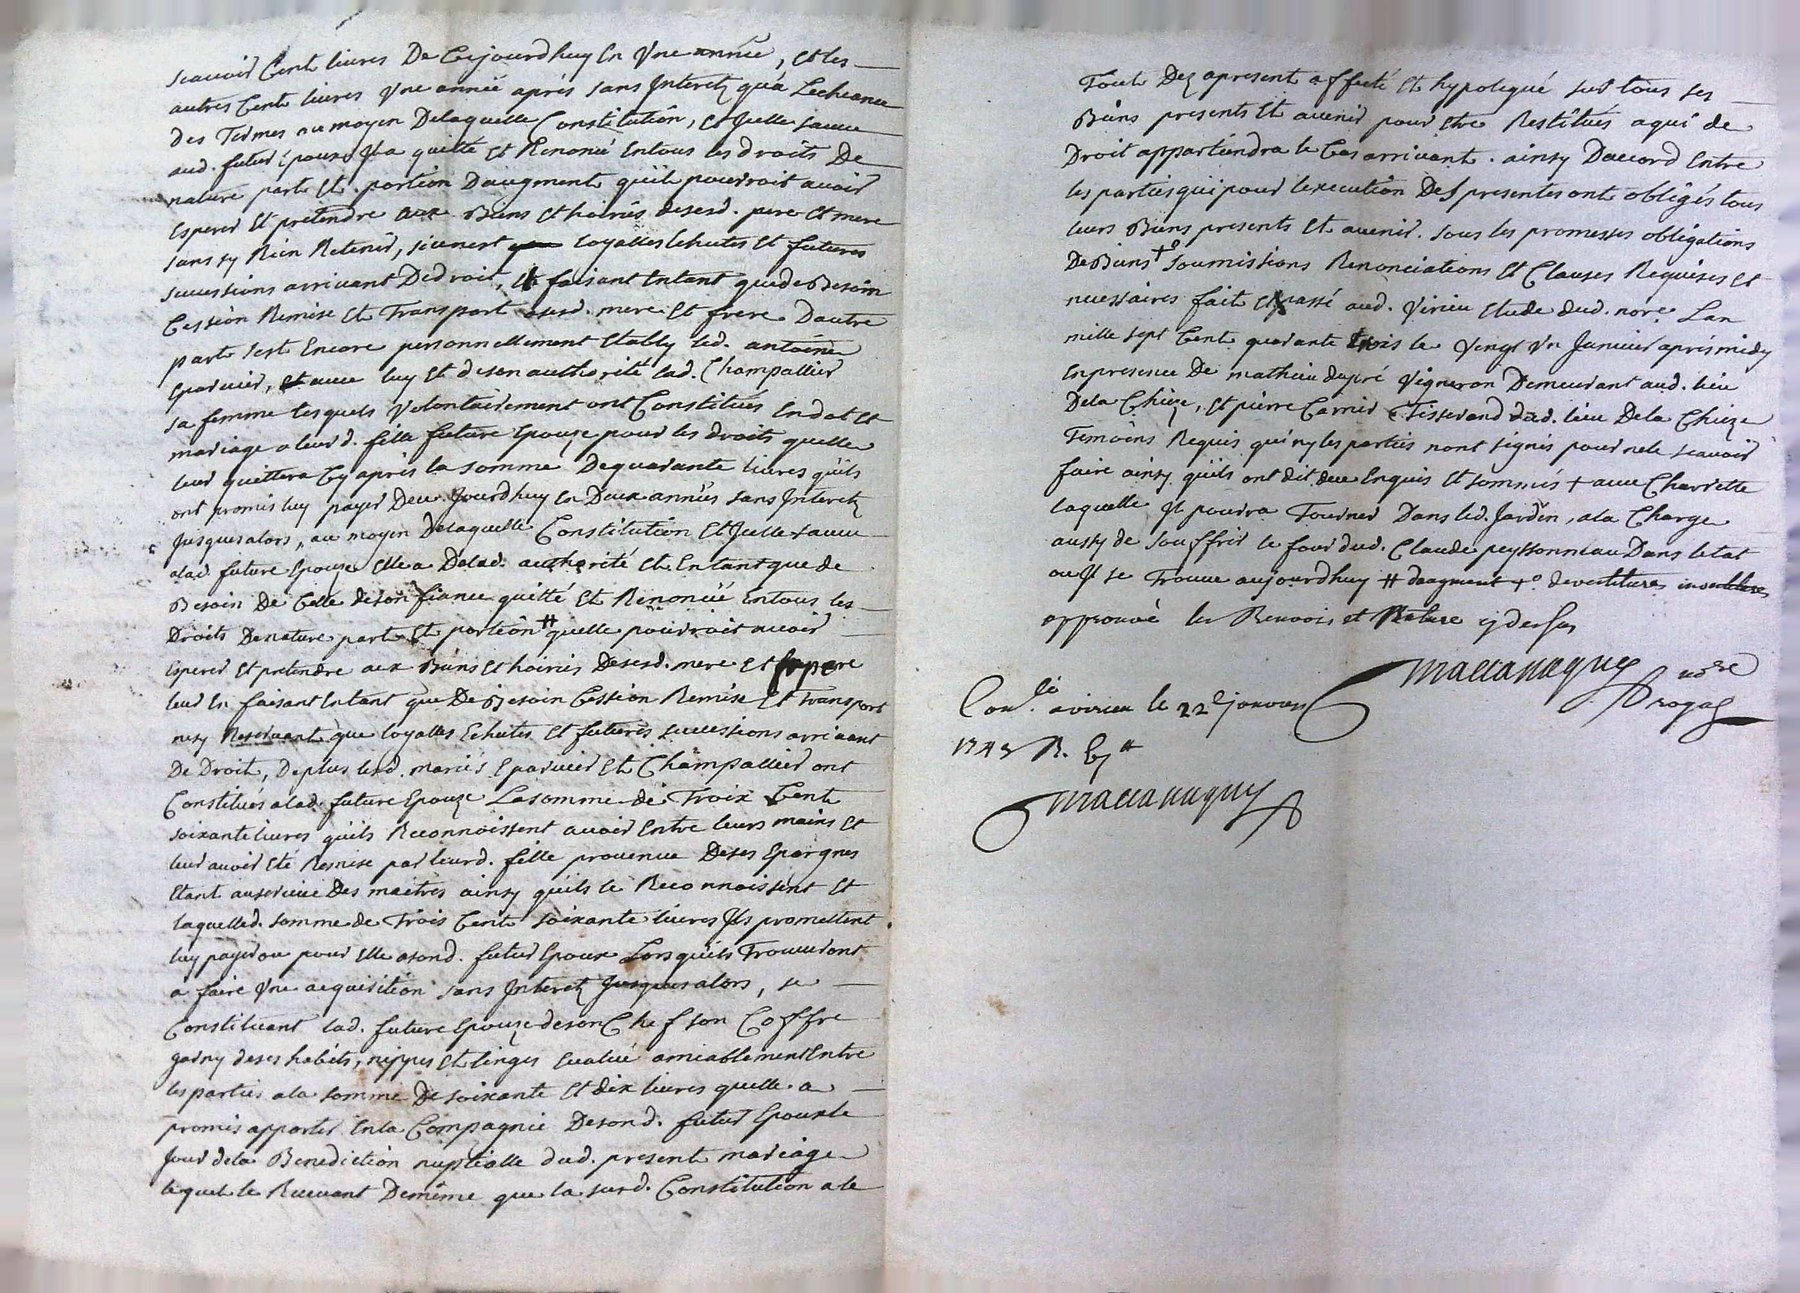 scavoir Cent livres De Cejourdhuy En Une année, et les
autres Cent livres Une année aprés sans Interetz qua Lecheance
des Termes au moyen Delaquelle Constitution, et Icelle sauve
aud. futur Epoux Il a quitté Et Renoncé Entous les droits De
nature part Et portion Daugment quil pourroit avoir
Esperer Et pretendre aux Biens Et hoiries desesd. pere Et mere
sans sy Rien Retenir, sicenest loyalles Echutes Et futures
successions arrivant Dedroit, faisant Entant quede Besoin
Cession Remise Et Transport asesd. mere Et frere Dautre
part sest Encore personnellement Etably led. antoine
Eparvier, et avec luy Et deson authorité lad. Champallier
sa femme lesquels Volontairement ont Constitués Endot Et
mariage aleurd. fille future Epouze pour les droits quelle
leur quittera Cy aprés la somme Dequarante livres quils
ont promis luy payer Dece Jourdhuy En Deux années sans Interetz
Jusques alors, au moyen Delaquelle Constitution Et Icelle sauve
alad. future Epouze Elle a Delad. authorité Et Entantque de
Besoin De Celle deson fiancé quitté Et Renoncé Entous les
Droits Denature part Et portion # quelle pourroit avoir
Esperer Et pretendre aux Biens Et hoiries Desesd. mere Et pere
leur En faisant Entant que De Besoin Cession Remise Et Transport
nesy Reservant que loyalles Echutes Et futures successions arrivant
De Droit, Deplus lesd. mariés Eparvier Et Champallier ont
Constitués alad. future Epouze Lasomme de Troix Cent
soixante livres quils Reconnoissent avoir Entre leurs mains Et
leur avoir Eté Remise par leurd. fille provenue Deses Epargnes
Etant auservice Des maitres ainsy quils le Reconnoissent Et
laquelled. somme de Trois Cent soixante livres Ils promettent
luy payer ou pour Elle asond. futur Epoux Lorsquils Trouveront
a faire Une acquisition sans Interetz Jusques alors, se
Constituant lad. future Epouze deson Chef son Coffre
garny deses habits, nippes Et linges Evalué amiablement Entre
les parties ala somme De soixante Et dix livres quelle a
promis apporter Enla Compagnie Desond. futur Epoux le
Jour dela Benediction nuptialle dud. present mariage
lequel le Recevant Demême que la susd. Constitution ale
Tout Dez apresent affecté Et hypotequé sur tous ses
Biens presents Et avenir pour Etre Restitués aqui de
Droit appartiendra le Cas arrivant. ainsy Daccord Entre
les parties qui pour lexecution Des presentes ont obligés tous
leurs Biens presents Et avenir. sous les promesses obligations
De Biens +o soumissions Renonciations Et Clauses Requises Et
necessaires fait Et passé aud. Virieu Etude dud. nore. Lan
mille sept Cent quarante trois le Vingt Un Janvier aprés midy
Enpresence De mathieu dupré Vigneron Demeurant aud. lieu
Dela Chieze, Et pierre Carnir Tisserand dud. lieu Dela Chieze
Temoins Requis qui ny les parties nont signés pour nele scavoir
faire ainsy quils ont dit, Dece Enquis Et sommés + avec Charrette
laquelle Il pourra Tourner Dans led. Jardin, ala Charge
aussy de souffrir le four dud. Claude peyssonneau Dans letat
ou Il se Trouve aujourdhuy # daugment +o. devestitures investitures
approuvé les Renvois et Rature cy dessus
Maccanequy nore
Con.lé avirieu le 22e Janvier
royal
1743 R.
Maccanequy